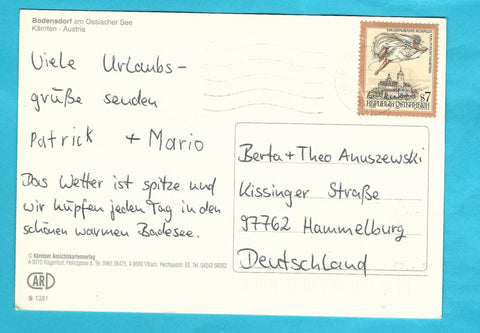 Bodensdorf am Ossiacher See
Kärnten - Austria
Viele Urlaubs-
grüße senden
Patrick + Mario
Das Wetter ist spitze und
wir hüpfen jeden Tag in den
schönen warmen Badesee.
© Kärntner Ansichtskartenverlag
A 9010 Klagenfurt,
A 9500 Villach,
ARI
S 1381
S 7
REPUBLIK ÖSTERREICH
Berta + Theo Anuszewski
Kissinger Straße
97762 Hammelburg
Deutschland